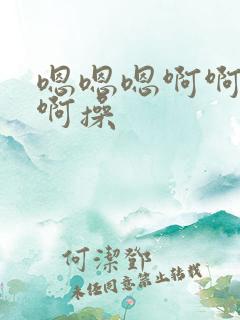 嗯嗯嗯啊啊
啊操
何潔鄧
未经同意禁止转载